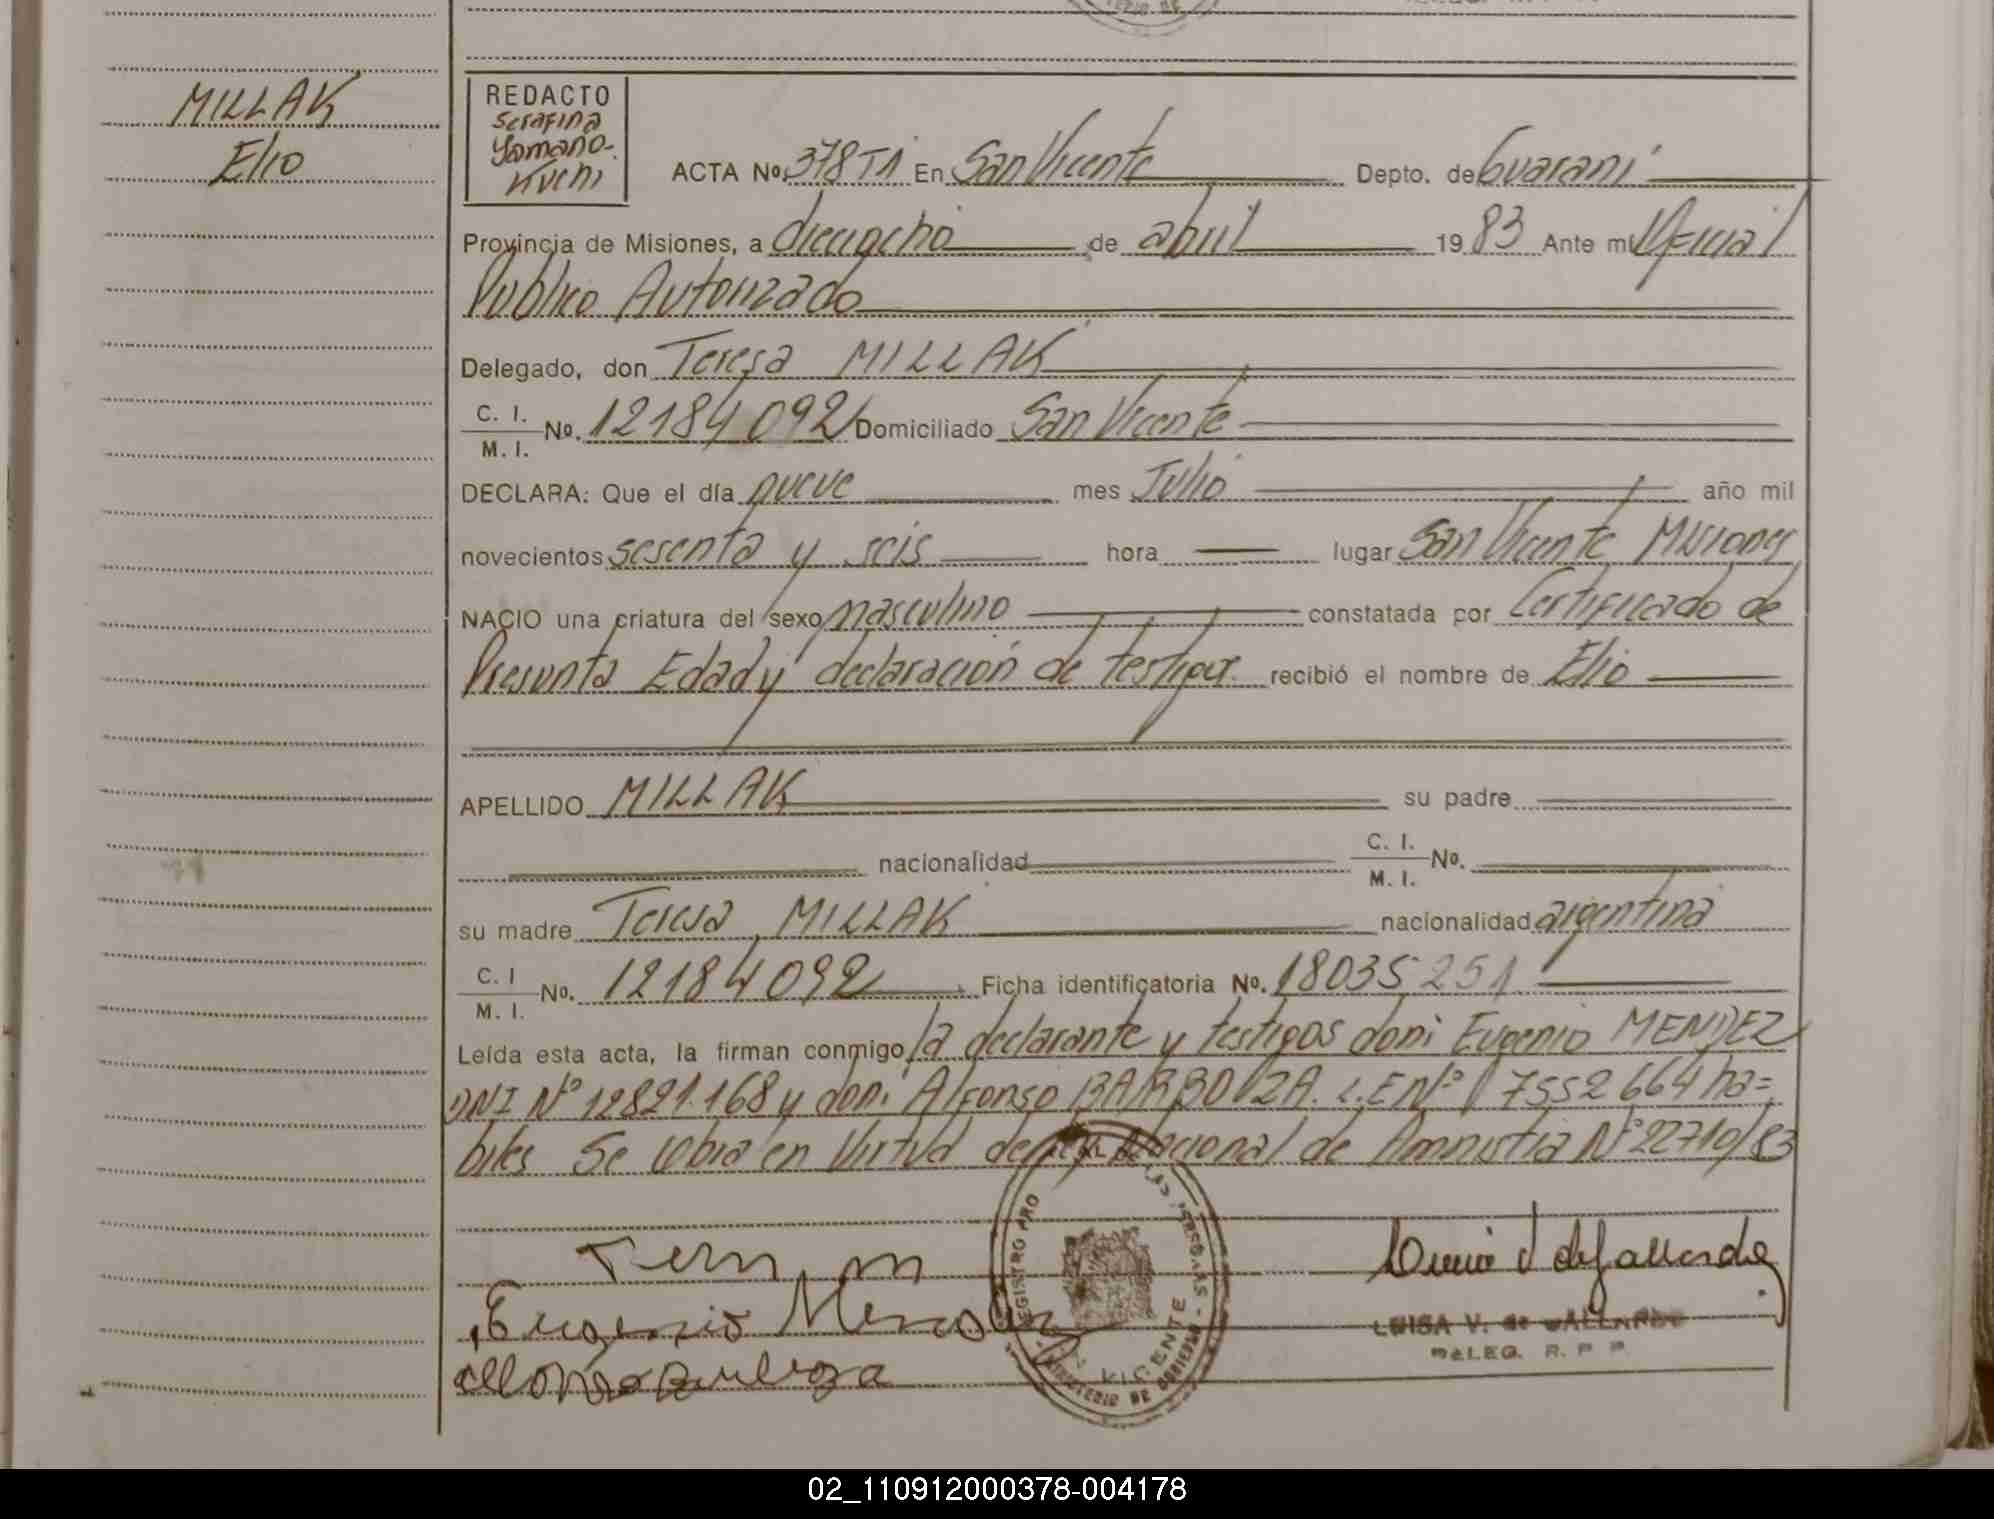 MILLAK
Elio
REDACTO
Serafina
Yamano-
Kuchi
ACTA No. 378 T1 En San Vicente Depto. de Guaraní
Provincia de Misiones, a dieciocho de abril 1983 Ante mi Oficial
Publico Autorizado
Delegado, don Teresa MILLAK
C. I.
M. I. No. 12184092 Domiciliado San Vicente
DECLARA: Que el día nueve mes Julio año mil
novecientos sesenta y seis hora lugar San Vicente Misiones
NACIO una criatura del sexo masculino constatada por Certificado de
Presunta Edad y declaración de testigos recibió el nombre de Elio
APELLIDO MILLAK su padre
nacionalidad C. I. M. I. No.
su madre Teresa MILLAK nacionalidad argentina
C. I
M. I. No. 12184092 Ficha identificatoria No. 18035251
Leída esta acta, la firman conmigo la declarante y testigos don: Eugenio MENDEZ
DNI Nº 12821.168 y don: Alfonso BARBOZA. L.E Nº 7552664 ha=
biles Se labra en Virtud de Ley Nacional de Amnistia Nº 22710/83
Eugenio Mendez
LUISA V. de GALLARDO
DELEG. R. P. P.
REGISTRO PRO DE LAS PERSONAS - MINISTERIO DE GOBIERNO
VICENTE
02_110912000378-004178